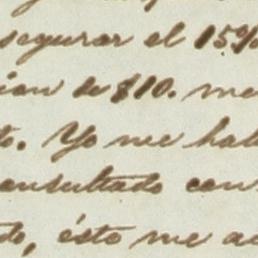 segurar el 15%
ion de $10. me
to. Yo me hal
onsultado con
do, ésto me a